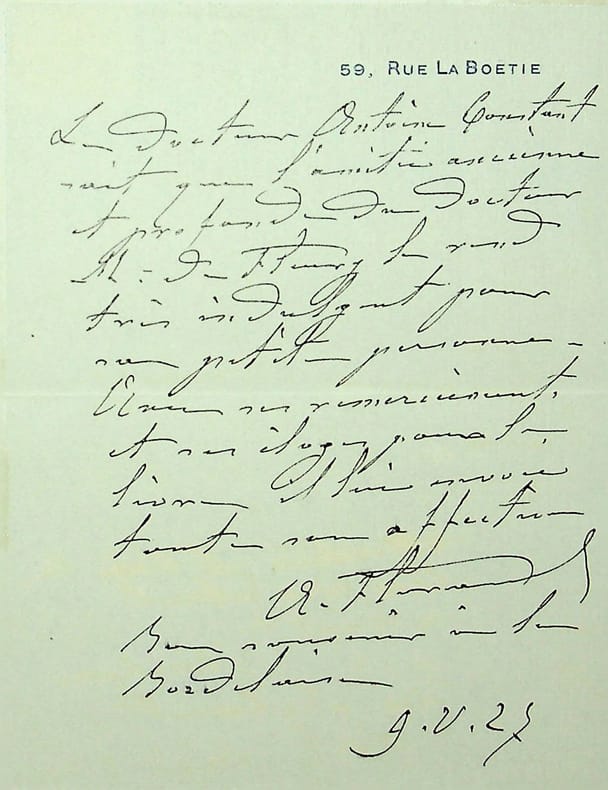 59, RUE LA BOETIE
Le Docteur Antoine Constant
sait que l'amitié ancienne
et profonde du Docteur
M. de Fleury le rend
très indulgent pour
sa petite personne -
Avec ses remerciements
et ses éloges pour le
livre il lui envoie
toute son affection
A. Florand
Bon souvenir à la
Bordelaise
9.V.27